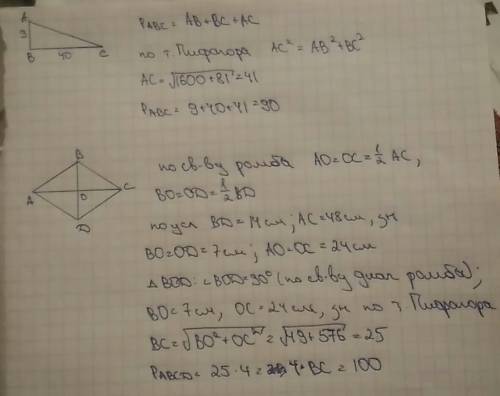 A
9
B
40
C
P_ABC = AB + BC + AC
по т. Пифагора AC² = AB² + BC²
AC = √1600+81 = 41
P_ABC = 9+40+41 = 90
B
A
O
C
D
по св-ву ромба AO=OC=½ AC,
BO=OD=½ BD
по усл BD=14см; AC=48см, зн
BO=OD=7см; AO=OC=24см
∠BOD=90° (по св-ву диаг ромба);
BO=7см, OC=24см, зн по т. Пифагора
BC=√BO²+OC² = √49+576 = 25
P_ABCD = 25·4 = 4·BC = 100